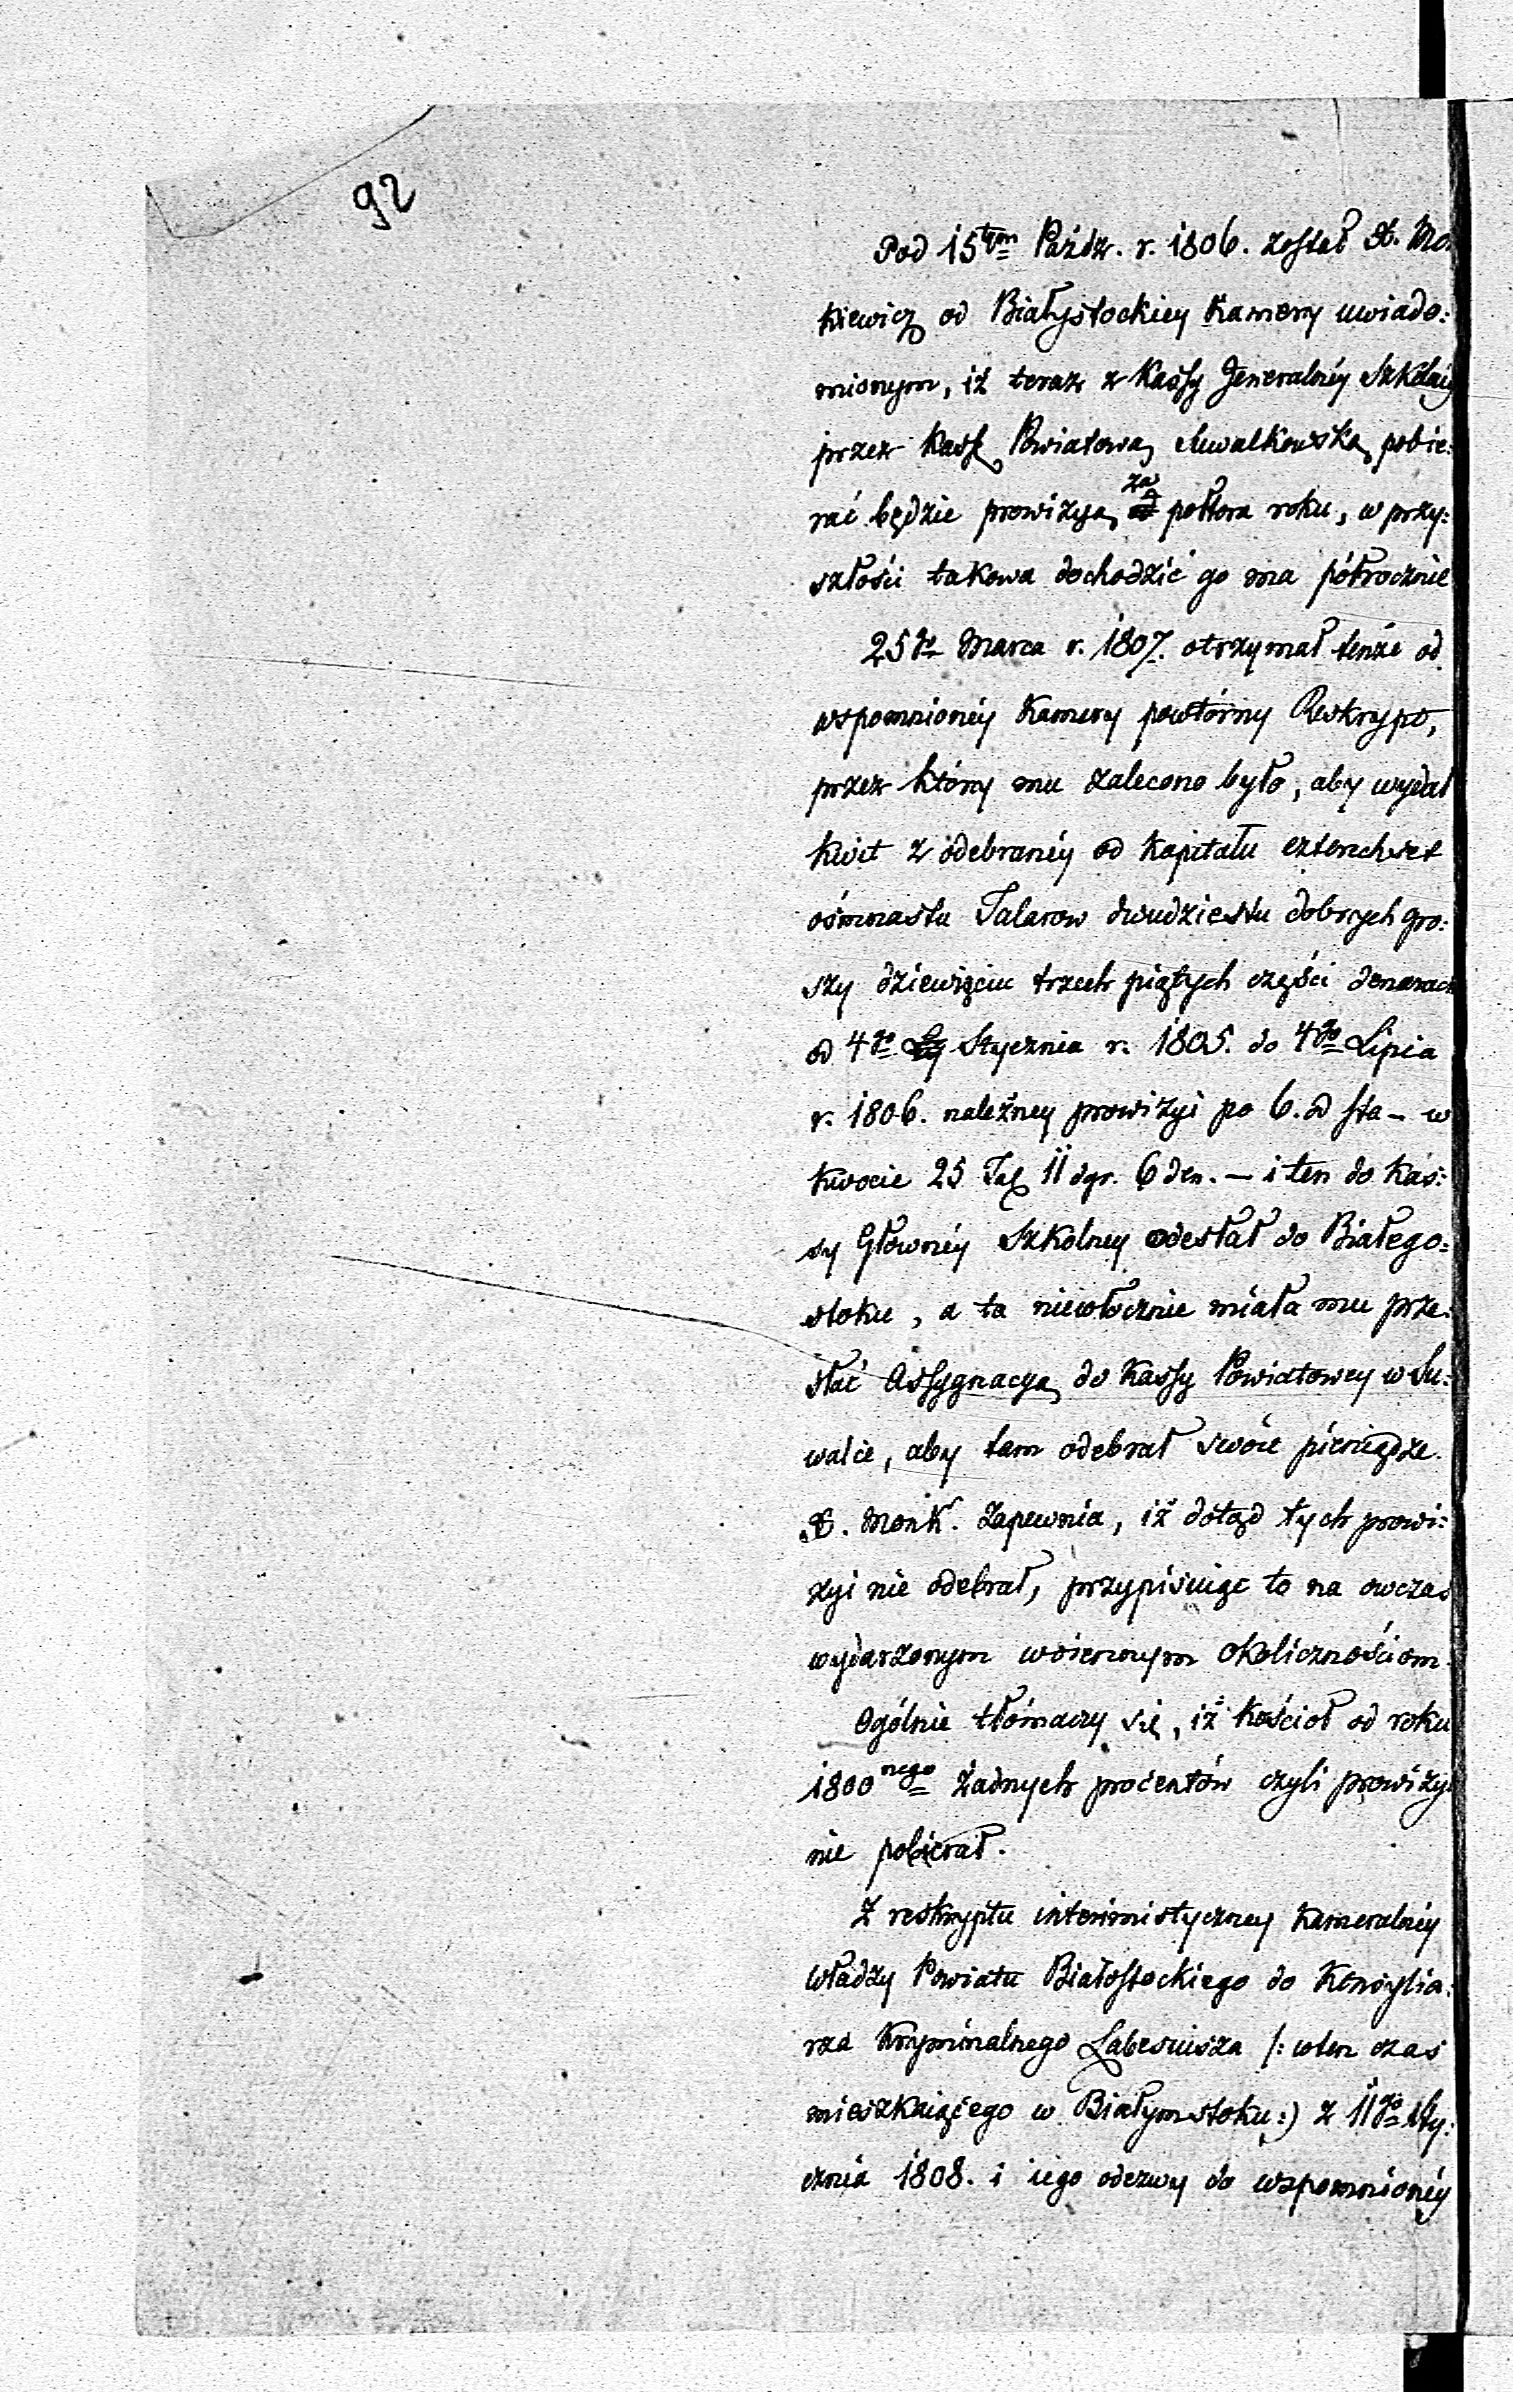 92
Pod 15tym Paźdz. r. 1806. został X. Mon
kiewicz od Białystockiey Kamery uwiado:
mionym, iż teraz z Kassy Generalnéy Szkolnéy
przez Kassę Powiatową Suwalkowską pobie:
rać będzie prowizyą za półtora roku, w przy:
szłości takowa dochodzić go ma półrocznie
25go Marca r. 1807. otrzymał tenże od
wspomnionéy Kamery powtórny Reskrypt,
przez który mu zalecono było, aby wydał
kwit z odebranéy od kapitału czterechset
ośmnastu Talarow dwudziestu dobrych gro:
szy dziewięciu trzech piątych części denarach
od 4go Stycznia r. 1805. do 4go Lipca
r. 1806. należney prowizyi po 6. od sta – w
kwocie 25 Tal 11 dgr. 6 den. – i ten do Kas:
sy Głównéy Szkolney odesłał do Białego=
stoku, a ta niewłocznie miała mu prze:
słać Assygnacyą do Kassy Powiatowey w Su:
walce, aby tam odebrał swóie pieniądze.
X. Monk. zapewnia, iż dotąd tych prowi:
zyi nie odebrał, przypisuiąc to na owczas
wydarzonym woiennym okolicznościom.
Ogólnie tłómaczy się, iż kościoł od roku
1800nego żadnych procentów czyli prowizyi
nie pobierał.
Z reskryptu interimistyczney Kameralnéy
władzy Powiatu Białostockiego do Konsylia:
rza Kryminalnego Labesiusza /: wten czas
mieszkaiącego w Białymstoku :) z 11go Sty:
cznia 1808. i iego odezwy do wspomnionéy